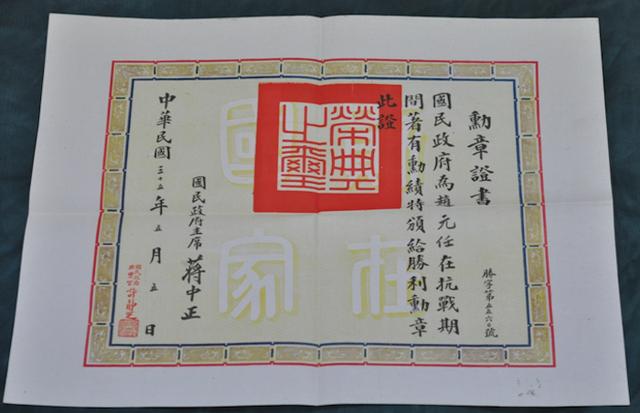 勳章證書
勝字第五五六〇號
國民政府為趙元任在抗戰期
間著有勳績特頒給勝利勳章
此證
榮典之璽
國民政府主席 蔣中正
中華民國三十五年五月五日